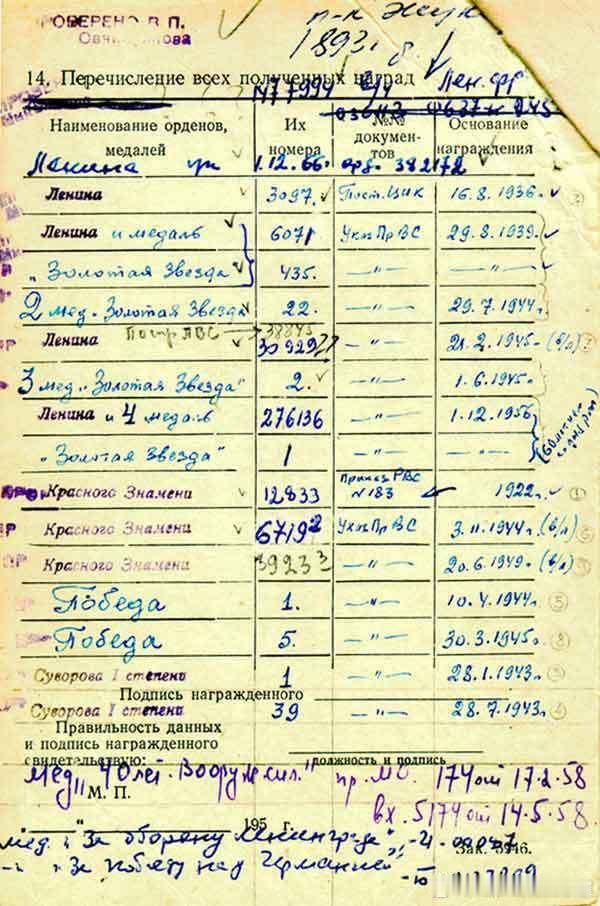 РОВЕРЕНО В. П.
п-к Жук
1893 г.
14. Перечисление всех полученных наград
N77994
Наименование орденов, медалей
Их номера
№№ документов
Основание награждения
Ленина 1.12.66 382172
Ленина 3097. Пост. ЦИК 16.8.1936.
Ленина и медаль 6071 Указ ПрВС 29.8.1939.
"Золотая Звезда" 435. —"— —"—
2 мед. "Золотая Звезда" 22. —"— 29.7.1944г.
38845
Ленина 30929 —"— 21.2.1945. (в/л)
3 мед. "Золотая Звезда" 2. —"— 1.6.1945г.
Ленина и 4 медаль 276136 —"— 1.12.1956
"Золотая Звезда" 1 —"— —"—
Красного Знамени 12833 Приказ РВС N183 1922г. 1
Красного Знамени 67192 Указ ПрВС 3.11.1944г. (в/л)
Красного Знамени 39233 —"— 20.6.1949г. (в/л)
Победа 1. —"— 10.4.1944г. 5
Победа 5. —"— 30.3.1945г. 8
Суворова I степени 1 —"— 28.1.1943г.
Подпись награжденного
Суворова I степени 39 —"— 28.7.1943г.
Правильность данных
и подпись награжденного
свидетельствую:
должность и подпись
Мед. "40 лет Вооруж. сил." пр. МО 174 от 17.2.58
М. П.
вх. 5174 от 14.5.58.
195 г.
мед. "За оборону Ленинграда"
Зак. 3946.
"За победу над Германией" - Ю